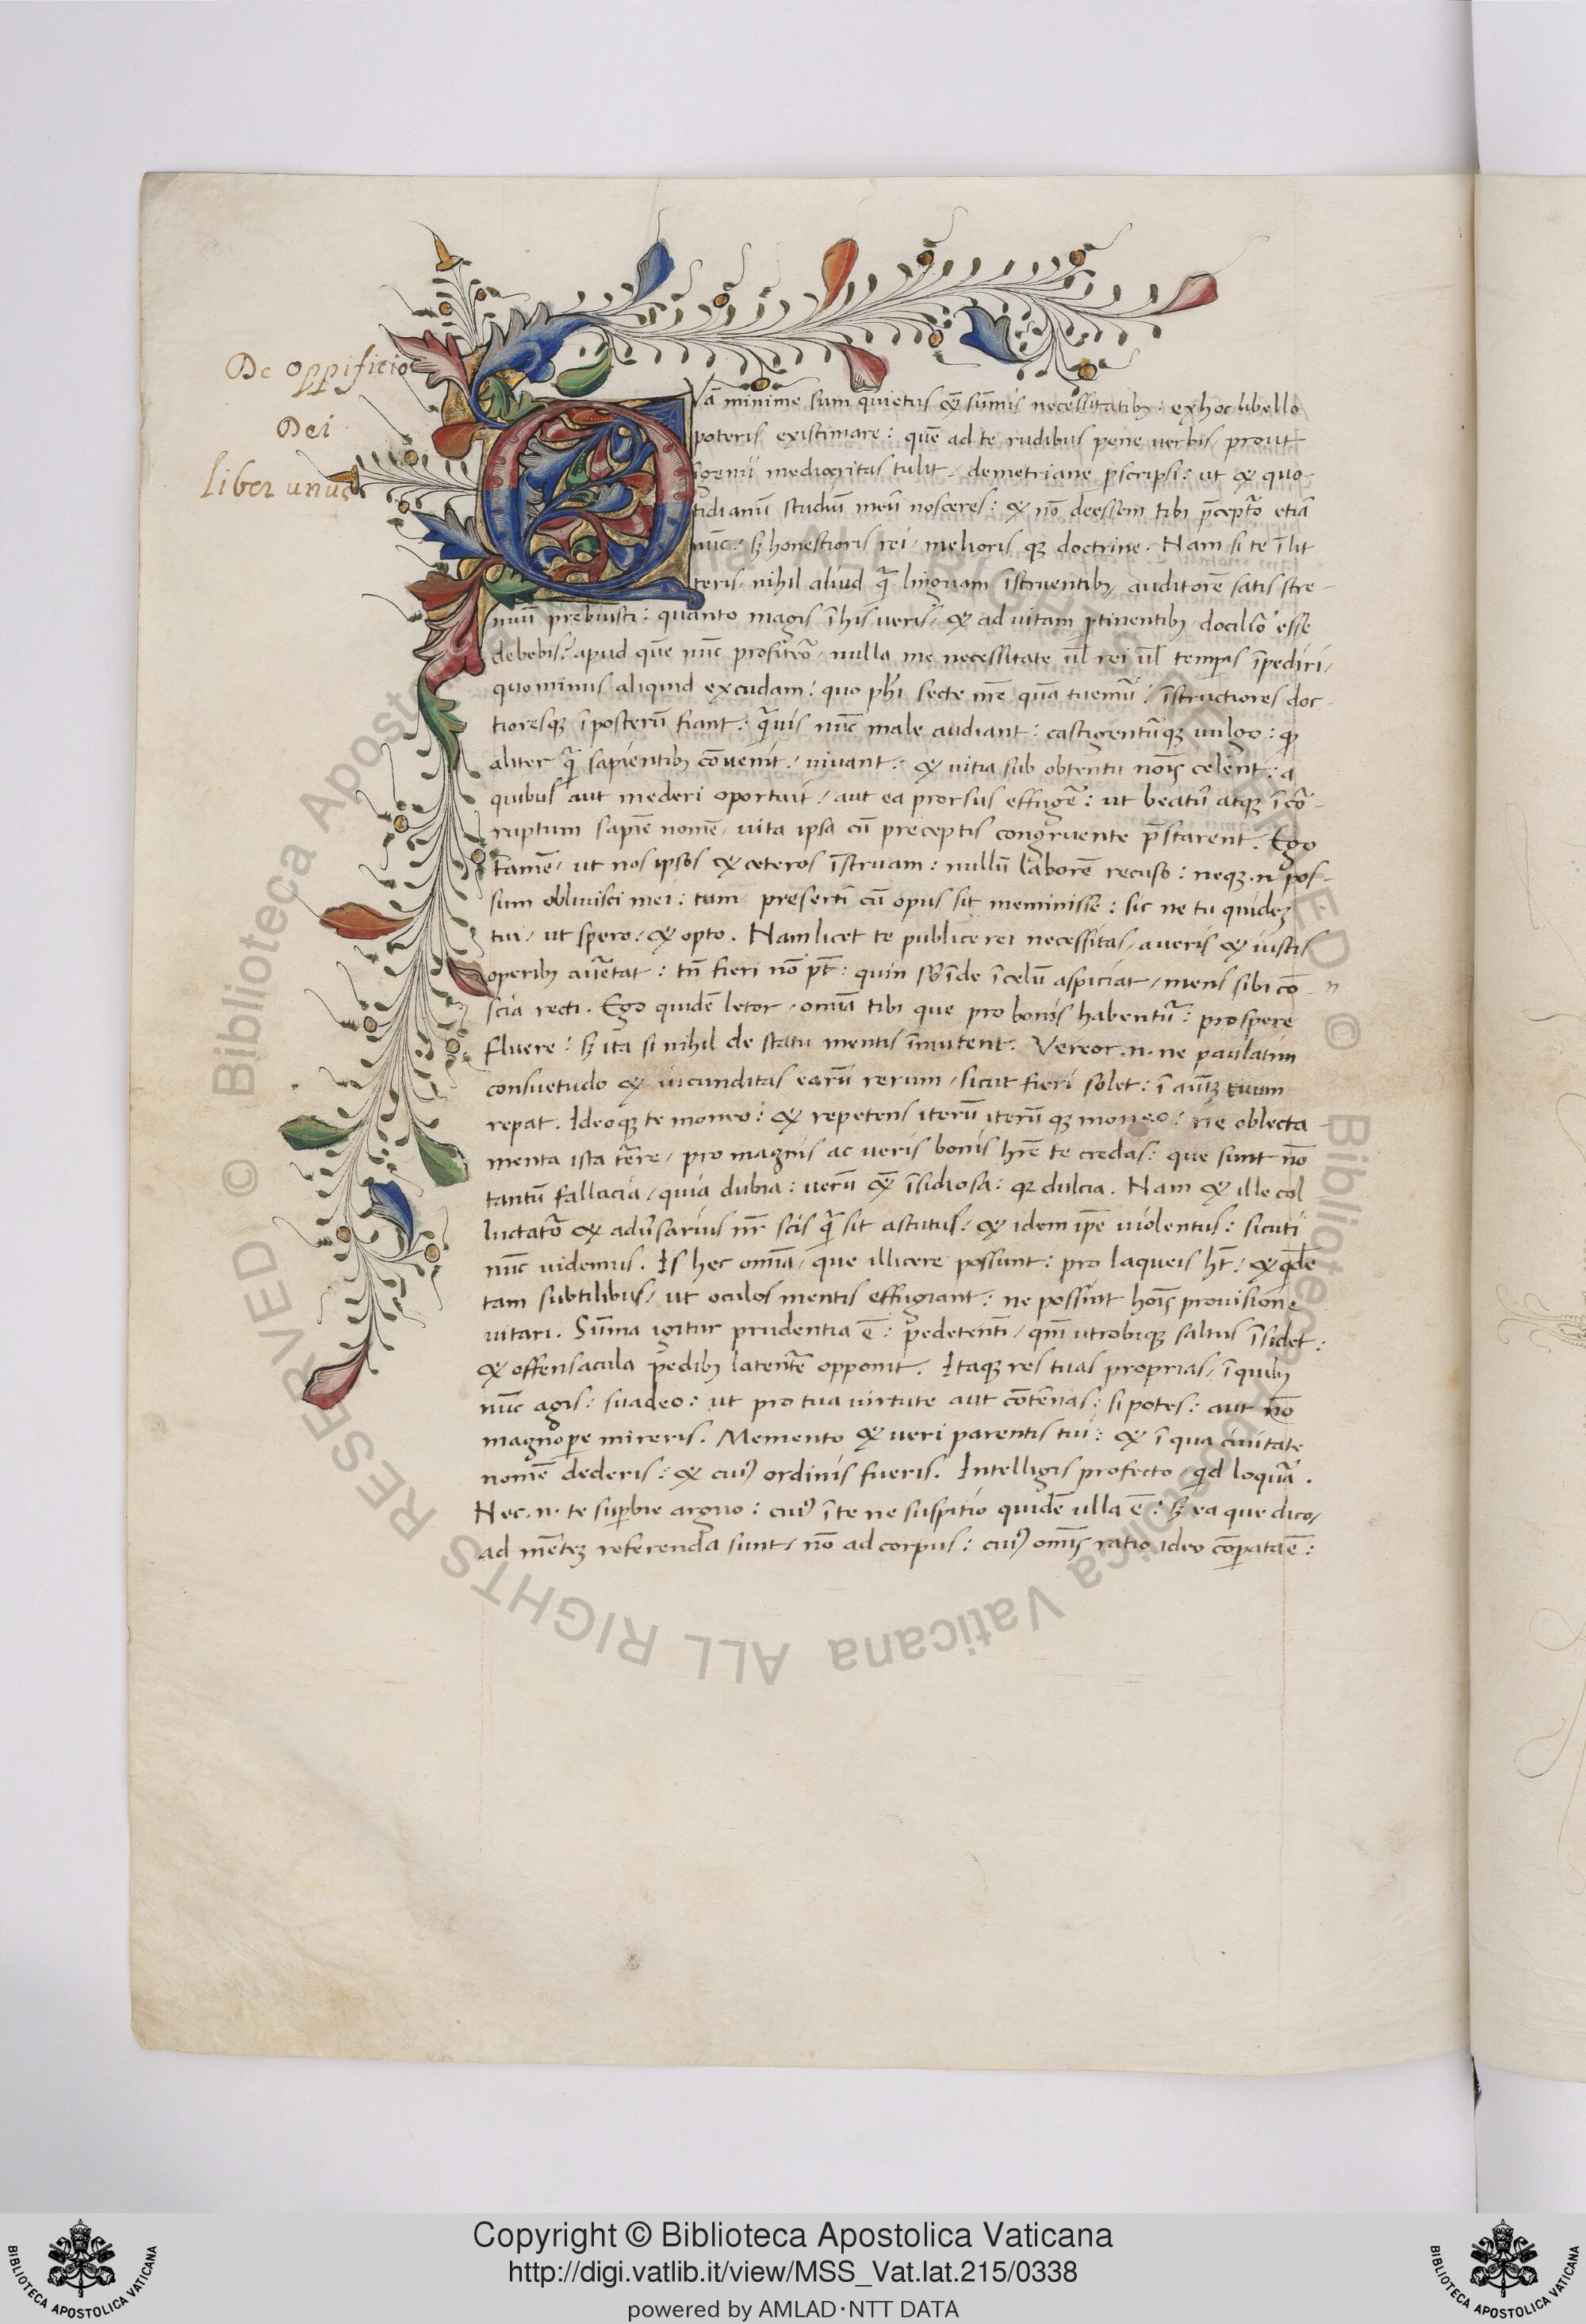 De oppificio
Dei
liber unus
Qvā minime sum quietus & ī sūmis necessitatibꝫ: ex hoc libello
poteris existimare: quē ad te rudibus pene verbis prout
īgenii mediocritas tulit, demetriane pscripsi: ut & quo
tidianū studiū meū nosceres: & nō deessem tibi pceptor etiā
nūc: sꝫ honestioris rei, melioris qꝫ doctrine. Nam si te ī lit
teris, nihil aliud quā linguam īstruentibꝫ, auditorē satis stre-
nuū prebuisti: quanto magis ī his veris, & ad vitam ptinentibꝫ, docilior esse
debebis? apud quē nūc profiteor, nulla me necessitate ul rei ul tempis īpediri,
quominus aliquid excudam: quo phi secte nre quā tuemur: īstructiores doc-
tioresqꝫ ī posterū fiant: quāvis nūc male audiant: castigenturqꝫ vulgo: qꝫ
aliter quā sapientibꝫ cōvenit, vivant: & vitia sub obtentu nois celent: a
quibus aut mederi oportuit, aut ea prorsus effugere: ut beatū atqꝫ īcor-
ruptum sapiē nomē, vita ipsa cū preceptis congruente pstarent. Ego
tamē, ut nos ipsos & ceteros īstruam: nullū laborē recuso: neqꝫ .n. pos-
sum oblivisci mei: tum presertī cū opus sit meminisse: sic ne tu quideꝫ
tui, ut spero, & opto. Nam licet te publice rei necessitas, a veris & iustis
operibꝫ avertat: tn̄ fieri nō pt: quin subinde ī celū aspiciat, mens sibi cō-n
scia recti. Ego quidē letor, omia tibi que pro bonis habentur: prospere
fluere: sꝫ ita si nihil de statu mentis īmutent. Vereor .n. ne paulatim
consuetudo & iucunditas earū rerum, sicut fieri solet: ī aīum tuum
repat. Ideoqꝫ te moneo: & repetens iterū iterūqꝫ moneo: ne oblecta-
menta ista terre, pro magnis ac veris bonis hre te credas: que sunt nō
tantū fallacia, quia dubia: verū & īsidiosa: qꝫ dulcia. Nam & ille col
luctator & adversarius nr scis quā sit astutus, & idem ipe violentus: sicuti
nūc videmus. Is hec omia, que illicere possunt: pro laqueis ht, & qdē
tam subtilibus, ut oculos mentis effugiant: ne possint hois provisione
vitari. Sūma igitur prudentia ē: pedetentī, qm̄ utrobique saltus īsidet:
& offensacula pedibꝫ latenter opponit. Itaqꝫ res tuas proprias, ī quibꝫ
nūc agis: suadeo: ut pro tua virtute aut cōtēnas: si potes: aut nō
magnopere mireris. Memento & veri parentis tui: & ī qua civitate
nomē dederis: & cui9 ordinis fueris. Intelligis profecto, qd loquar.
Nec .n. te supbie arguo: cui9 ī te ne suspitio quidē ulla ē: sꝫ ea que dico,
ad mēteꝫ referenda sunt, nō ad corpus: cui9 omis ratio ideo cōpata ē:
© Biblioteca Apostolica Vaticana ALL RIGHTS RESERVED
Copyright © Biblioteca Apostolica Vaticana
http://digi.vatlib.it/view/MSS_Vat.lat.215/0338
powered by AMLAD·NTT DATA
BIBLIOTECA APOSTOLICA VATICANA
BIBLIOTECA APOSTOLICA VATICANA